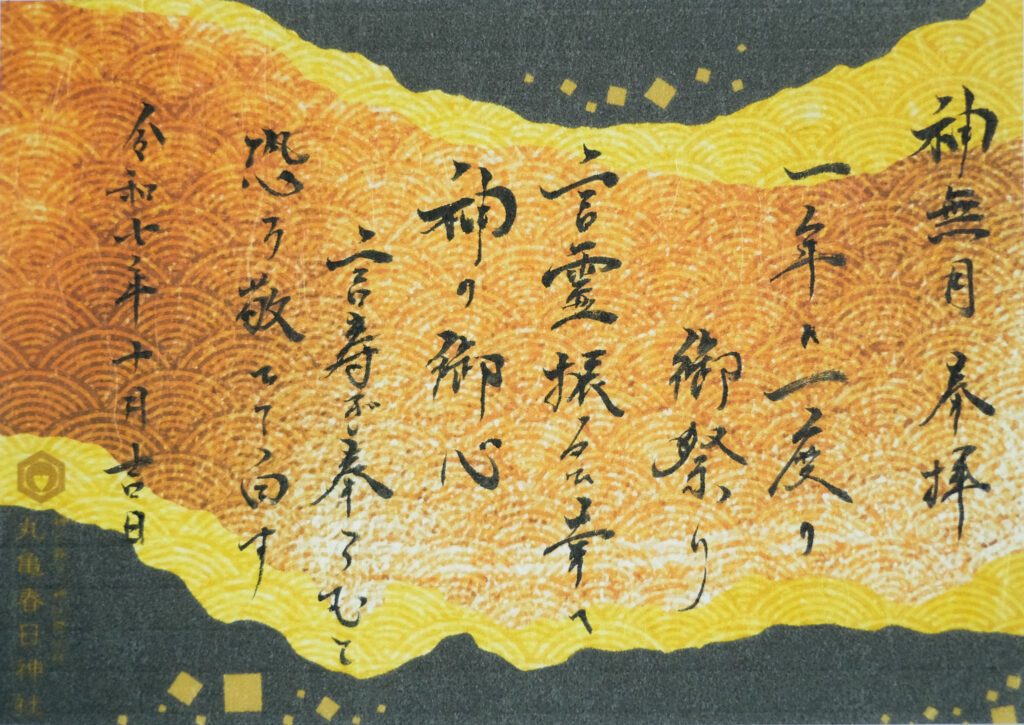 神無月 奉拝
一年に一度の
御祭り
言霊振る舎幸へ
神の御心
言寿ぎ奉らむと
恐み敬って白す
令和六年十月吉日
丸亀春日神社